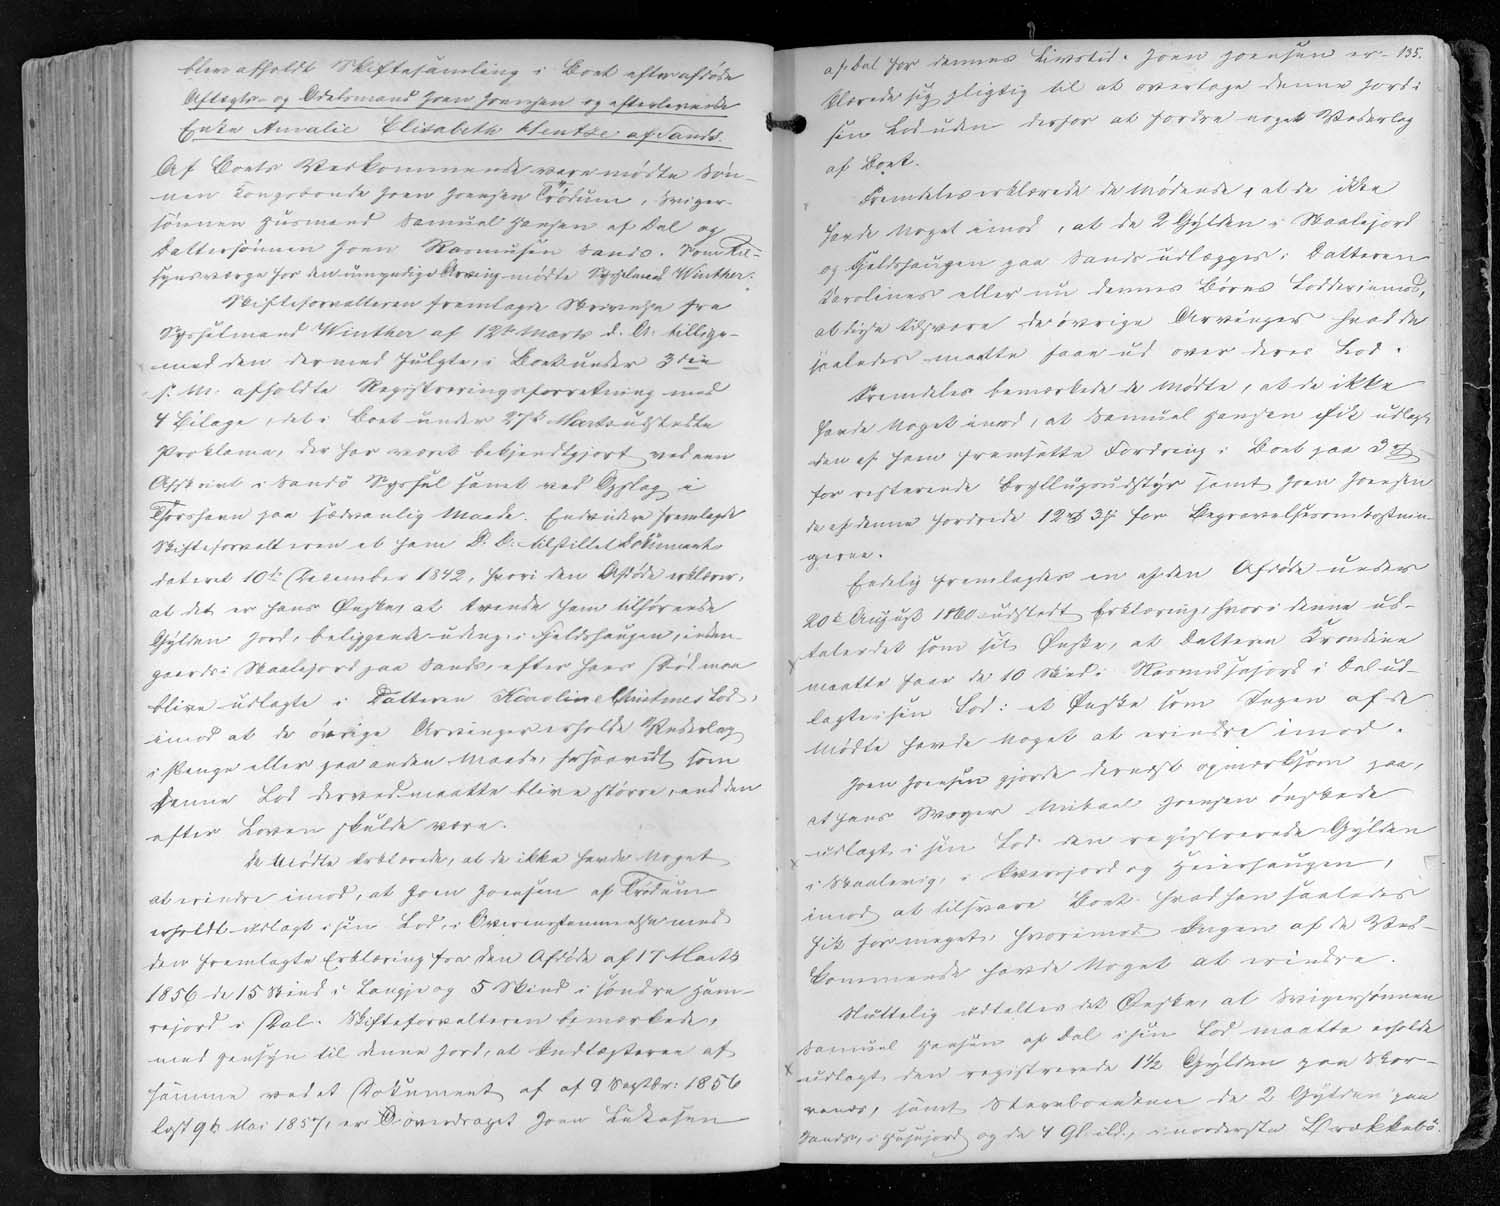 blev afholdt Skiftesamling i Boet efter afdøde
Aftægts- og Odelsmand Joen Joensen og efterlevende
Enke Amalie Elisabeth Hentze af Sand.
Af Boets Vedkommende vare mødte Søn-
nen Kongsbonde Joen Joensen Trødum, Sviger-
sønnen Huusmand Samuel Hansen af Dal og
Dattersønnen Joen Rasmusen Sand. Som Til-
synsværge for den umyndige Arving mødte Sysselmd Winther.
Skifteforvalteren fremlagde Skrivelse fra
Sysselmand Winther af 12te Marts d. A. tillige-
med den dermed fulgte, i Boet under 3die
s. M. afholdte Registreringsforretning med
4 Bilage, det i Boet under 27de Marts udstedte
Proklama, der har været bekjendtgjort ved en
Afskrivt i Sandø Syssel samt ved Opslag i
Thorshavn paa sædvanlig Maade. Endvidere fremlagde
Skifteforvalteren et ham D. D. tilstillet Dokument
dateret 10de December 1842, hvori den Afdøde erklærer,
at det er hans Ønske, at tvende ham tilhørende
Gylden Jord, beliggende udeng. i Heldshaugen, inden-
gaards i Skaalefjord paa Sand, efter hans Død maa
blive udlagte i Datteren Karoline Christines Lod,
imod at de øvrige Arvinger erholde Vederlag
i Penge eller paa anden Maade, forsaavidt som
denne Lod derved maatte blive større, end den
efter Loven skulde være.
De Mødte erklærede, at de ikke havde Noget
at erindre imod, at Joen Joensen af Trødum
erholdt udlagt i sin Lod, i Overensstemmelse med
den fremlagte Erklæring fra den Afdøde af 17 Marts
1856 de 15 Skind i Langje og 5 Skind i søndre Ham-
rejord i Dal. Skifteforvalteren bemærkede,
med Hensyn til denne Jord, at Indtægterne af
samme ved et Dokument af 9 Septbr: 1856
læst 9de Mai 1857, er overdraget Joen Lukasen
135.
af Dal for dennes Livstid. Joen Joensen er-
klærede sig pligtig til at overtage denne Jord i
sin Lod uden derfor at fordre noget Vederlag
af Boet.
Fremdeles erklærede de Mødende, at de ikke
havde Noget imod, at de 2 Gylden i Skaalefjord
og Heldshaugen paa Sand udlægges i Datteren
Karolines eller nu dennes Børns Lodder, imod,
at disse tilsvare de øvrige Arvinger hvad de
saaledes maatte faae ud over deres Lod.
Fremdeles bemærkede de Mødte, at de ikke
havde Noget imod, at Samuel Hansen fik udlagt
den af ham fremsatte Fordring i Boet paa 3 rd
for resterende Bryllupsudstyr samt Joen Joensen
de af denne fordrede 12 rd 3 β for Begravelsesomkostnin-
gerne.
Endelig fremlagdes en af den Afdøde under
20de August 1860 udstedt Erklæring, hvori denne ud-
taler det som sit Ønske, at Datteren Trondine
maatte faae de 10 Skind i Rasmusjord i Dal ud-
lagte i sin Lod: et Ønske som Ingen af de
Mødte havde Noget at erindre imod.
Joen Joensen gjorde dernæst opmærksom paa,
at hans Svoger Mikael Joensen ønskede
udlagt i sin Lod den registrerede Gylden
i Skaalevig, i Kvernjord og Heiershaugen,
imod at tilsvare Boet hvad han saaledes
fik for meget, hvorimod Ingen af de Ved-
kommende havde Noget at erindre.
Sluttelig udtaltes det Ønske, at Svigersønnen
Samuel Hansen af Dal i sin Lod maatte erholde
udlagt den registrerede 1½ Gylden paa Skar-
vanes, samt Stervboenken de 2 Gylden paa
Sand, i Huusejord og de 4 Gl. ibd., i nordersta Brekkebø.